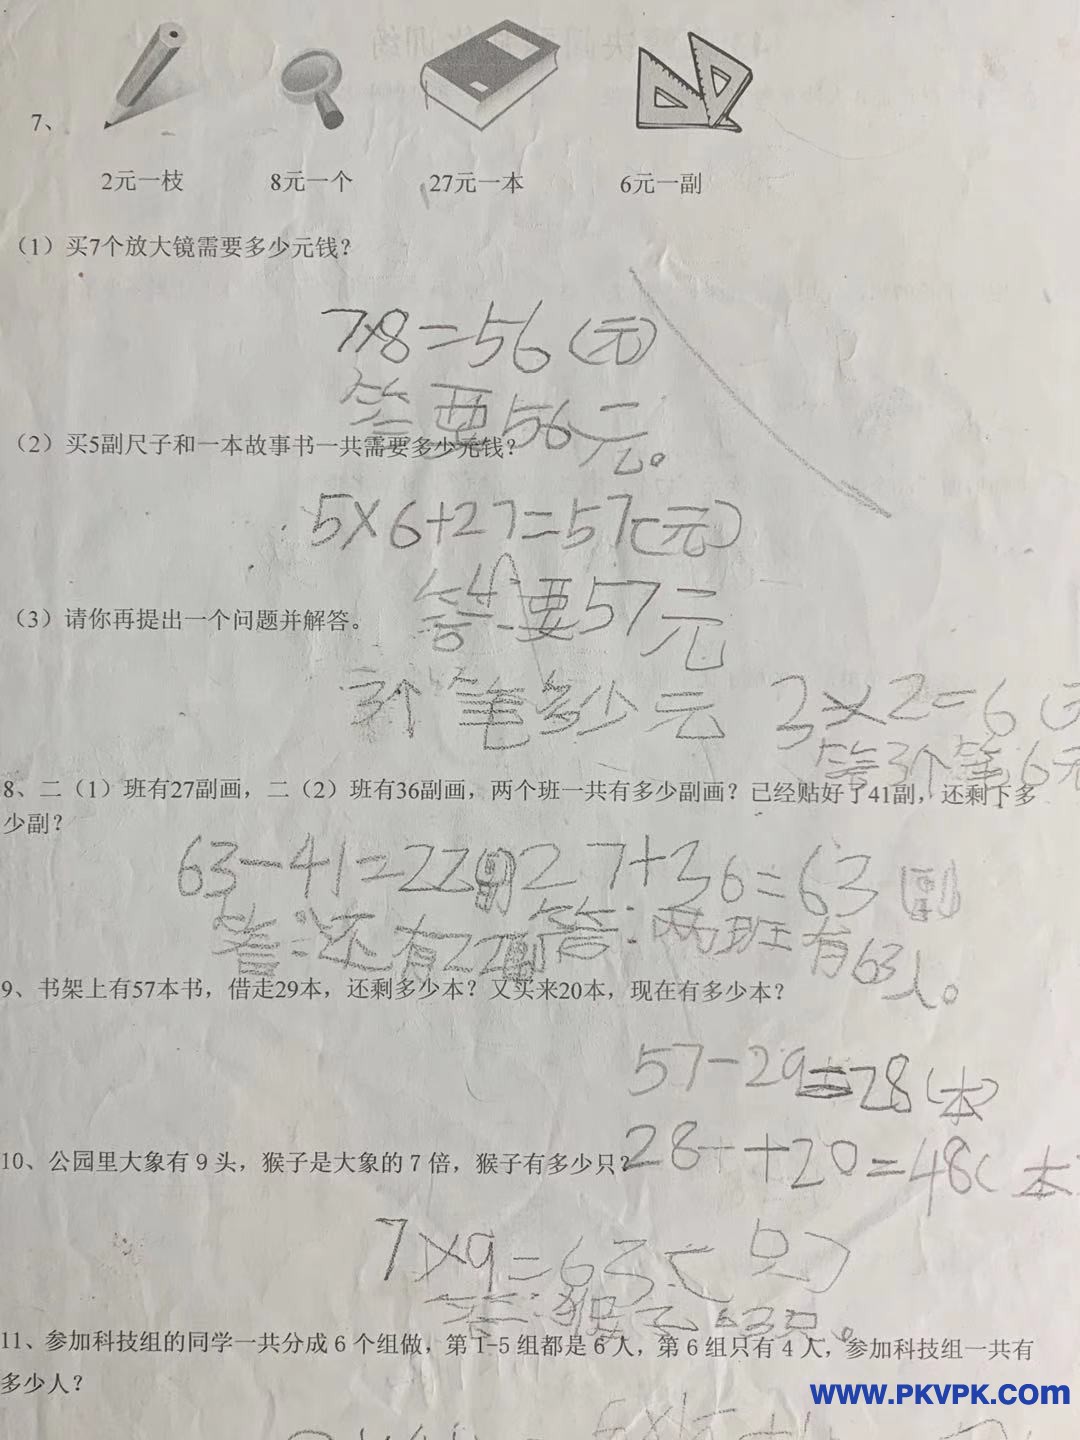 7、
2元一枝 8元一个 27元一本 6元一副
（1）买7个放大镜需要多少元钱？
7×8=56（元）
答要56元。
（2）买5副尺子和一本故事书一共需要多少元钱？
5×6+27=57（元）
答：要57元
（3）请你再提出一个问题并解答。
3个笔多少元 3×2=6（元
答3个笔6元
8、二（1）班有27副画，二（2）班有36副画，两个班一共有多少副画？已经贴好了41副，还剩下多
少副？
63-41=22（副） 27+36=63（副）
答：还有22副 答：两班有63人。
9、书架上有57本书，借走29本，还剩多少本？又买来20本，现在有多少本？
57-29=28（本）
28++20=48（本）
10、公园里大象有 9 头，猴子是大象的 7 倍，猴子有多少只？
7×9=63（只）
答：猴子63只。
11、参加科技组的同学一共分成 6 个组做，第 1-5 组都是 6 人，第 6 组只有 4 人，参加科技组一共有
多少人？
www.PKVPK.com